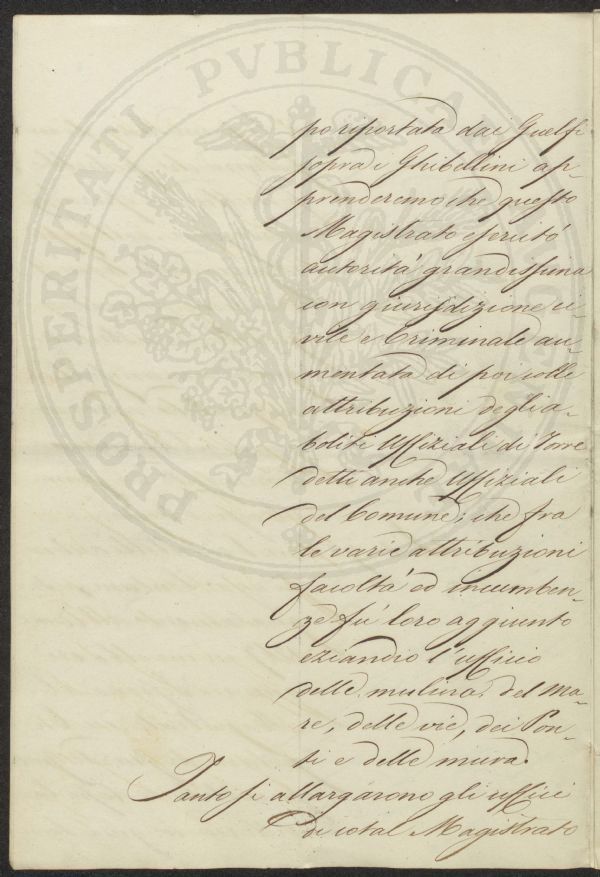 PROSPERITATI PVBLICAE
po riportata dai Guelfi
sopra i Ghibellini ap-
prenderemo che questo
Magistrato esercitó
autoritá grandissima
con giurisdizione ci-
vile e Criminale au-
mentata di poi colle
attribuzioni degli a-
boliti Uffiziali di Torre
detti anche Uffiziali
del Comune; che fra
le varie attribuzioni
facoltá ed incumben-
ze fú loro aggiunto
eziandio l'ufficio
delle mulina, del ma-
re, delle vie, dei Pon-
ti e delle mura.
Tanto si allargarono gli uffici
di cotal Magistrato